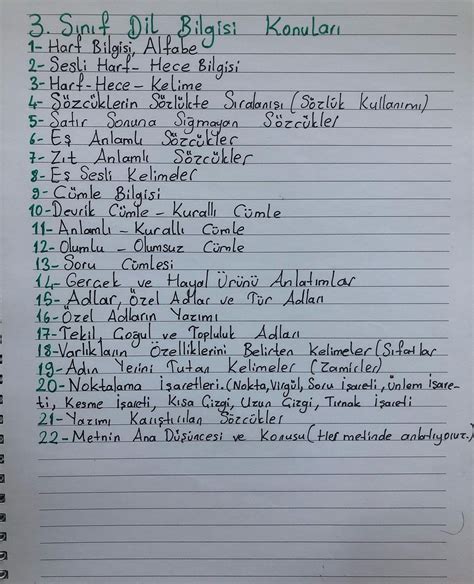 3. Sınıf Dil Bilgisi Konuları
1- Harf Bilgisi, Alfabe
2- Sesli Harf- Hece Bilgisi
3- Harf-Hece-Kelime
4- Sözcüklerin Sözlükte Sıralanışı (Sözlük Kullanımı)
5- Satır Sonuna Sığmayan Sözcükler
6- Eş Anlamlı Sözcükler
7- Zıt Anlamlı Sözcükler
8- Eş Sesli Kelimeler
9- Cümle Bilgisi
10- Devrik Cümle - Kurallı Cümle
11- Anlamlı - Kurallı Cümle
12- Olumlu - Olumsuz Cümle
13- Soru Cümlesi
14- Gerçek ve Hayal Ürünü Anlatımlar
15- Adlar, Özel Adlar ve Tür Adları
16- Özel Adların Yazımı
17- Tekil, Çoğul ve Topluluk Adları
18- Varlıkların Özelliklerini Belirten Kelimeler (Sıfatlar
19- Adın Yerini Tutan Kelimeler (Zamirler)
20- Noktalama İşaretleri. (Nokta, Virgül, Soru işareti, Ünlem işare-
ti, Kesme işareti, Kısa Çizgi, Uzun Çizgi, Tırnak işareti
21- Yazımı Karıştırılan Sözcükler
22- Metnin Ana Düşüncesi ve Konusu (Her metinde anlatılıyoruz.)